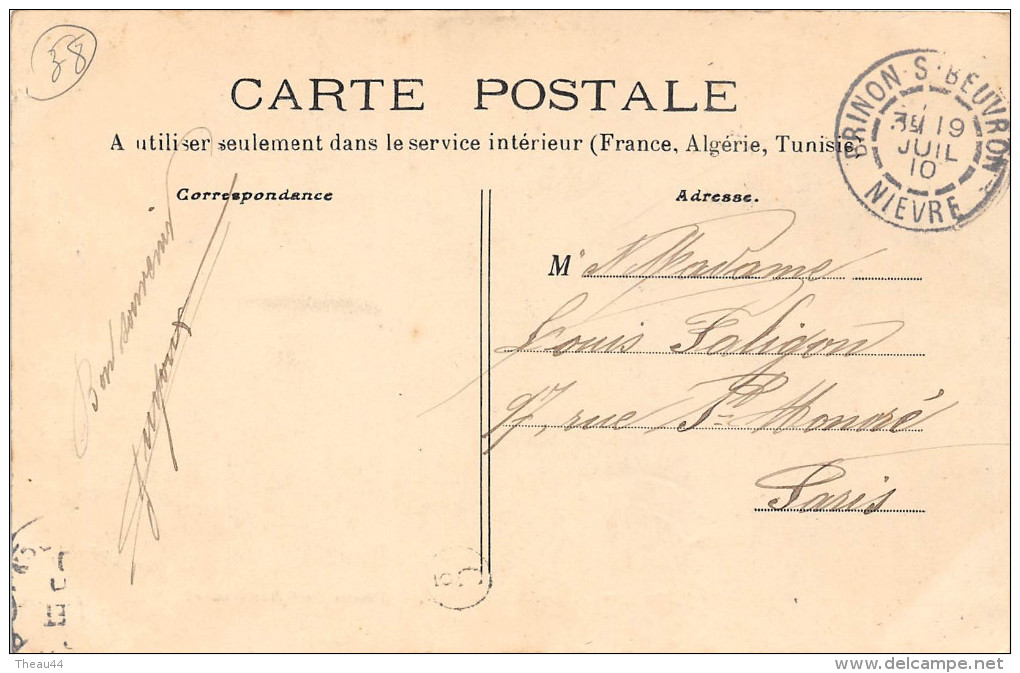 38
CARTE POSTALE
A utiliser seulement dans le service intérieur (France, Algérie, Tunisie)
BRINON-S-BEUVRON
19
JUIL
10
NIEVRE
Correspondance
Adresse.
Bon souvenir
M Madame
Louis Faligon
rue
Paris
Theau44
delcampe.net